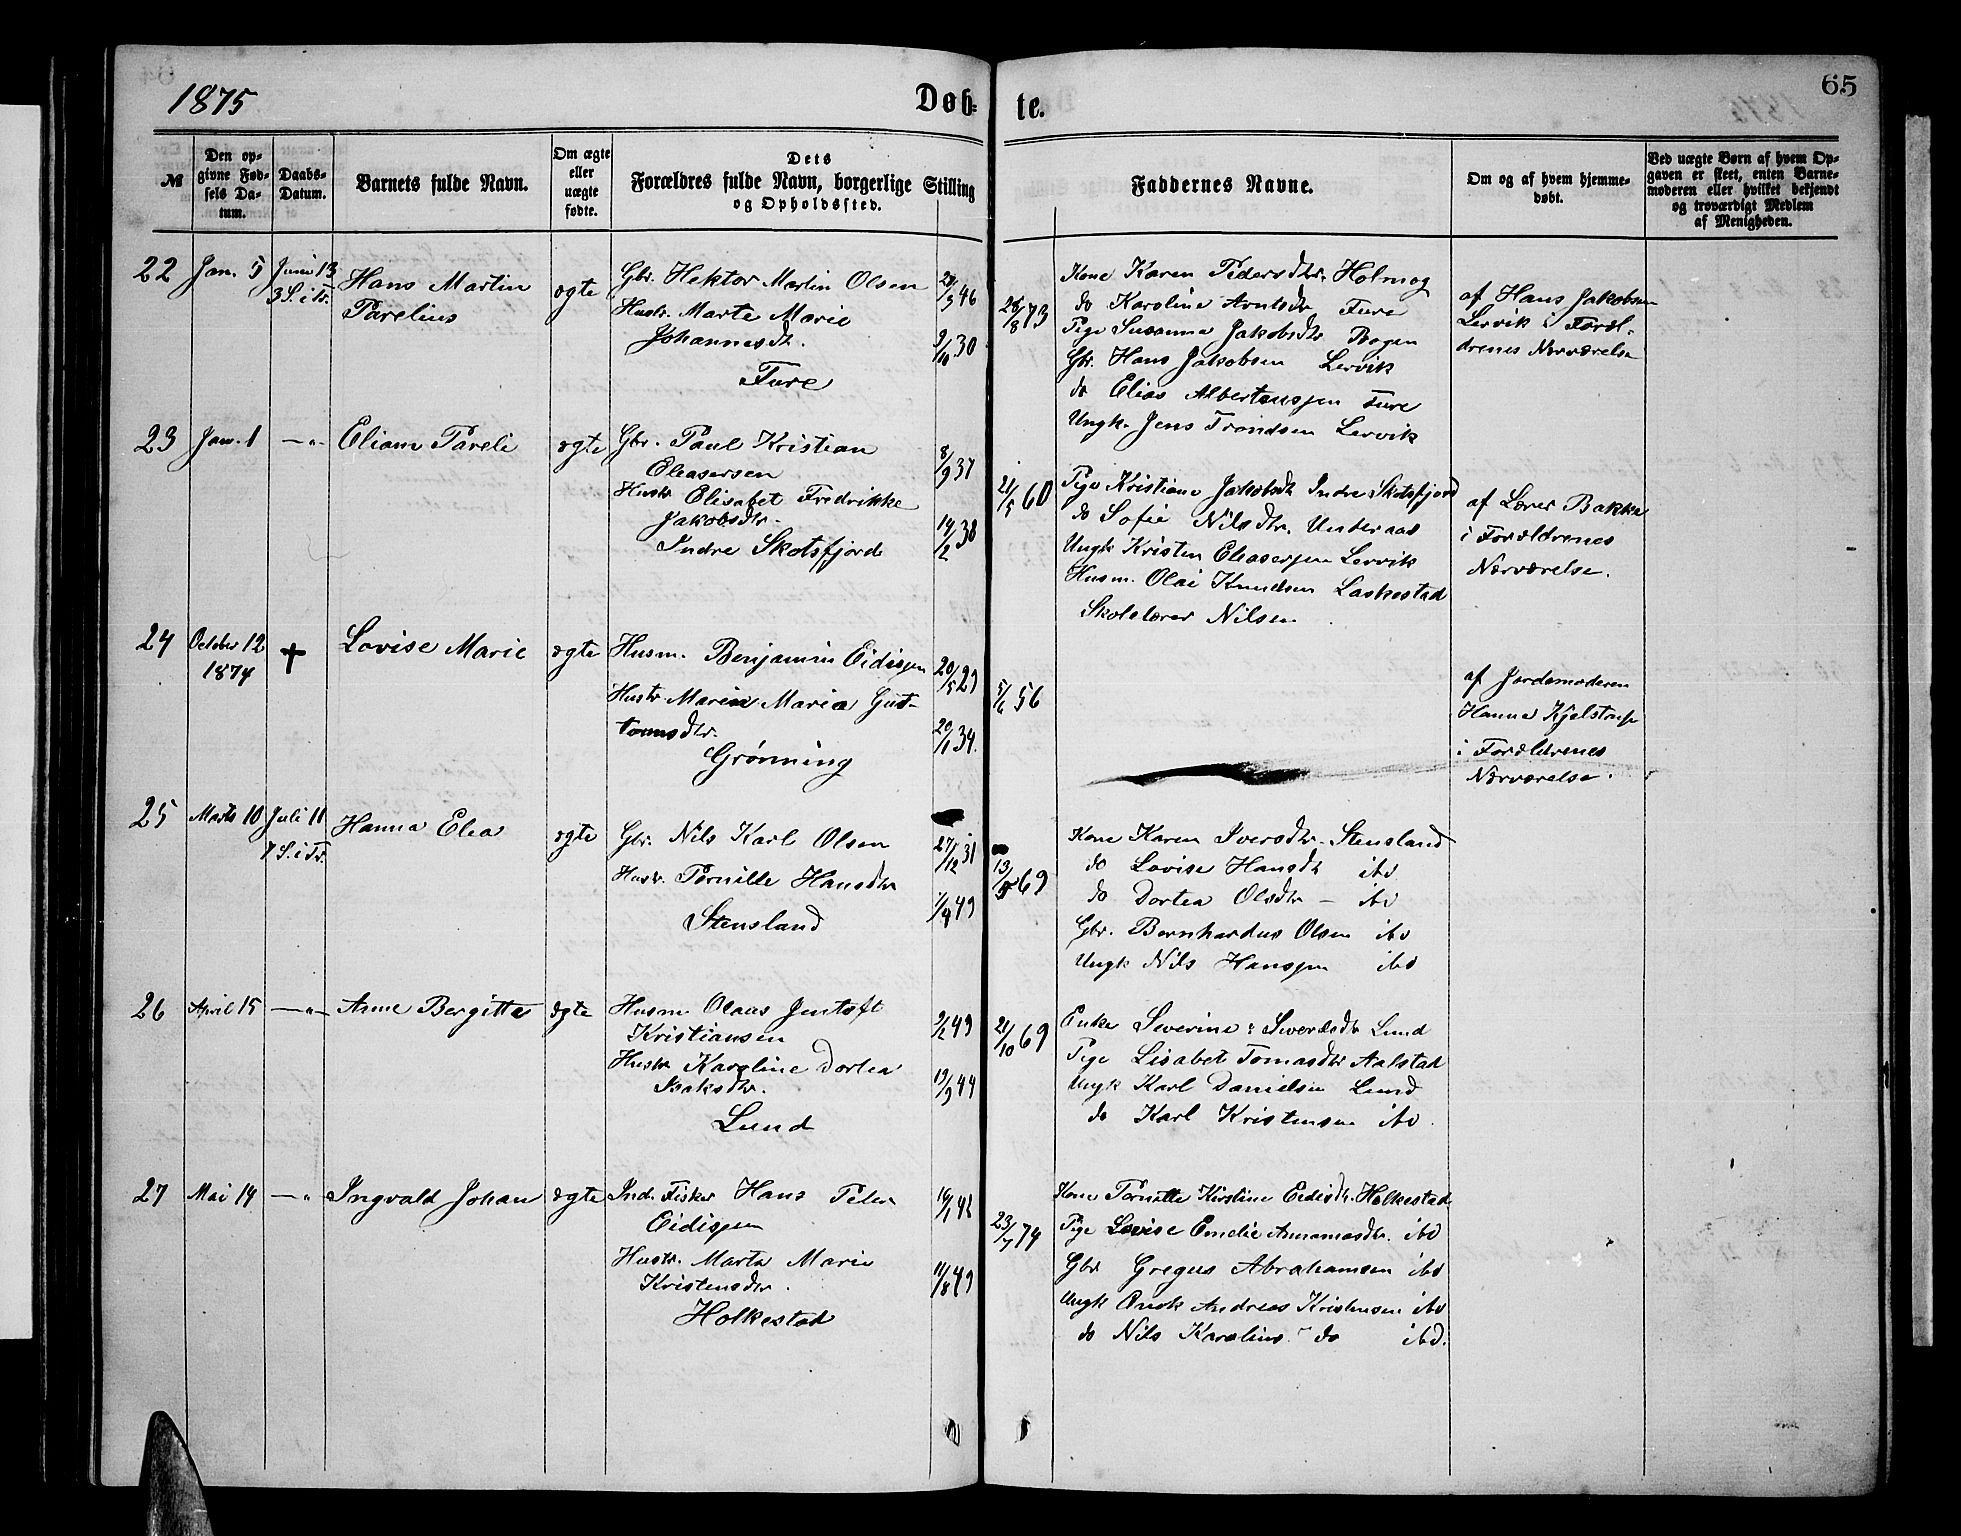 1875
Døb-te.
65
№
Den opgivne Fødsels Datum.
Daabs-Datum.
Barnets fulde Navn.
Om ægte eller uægte fødte.
Dets Forældres fulde Navn, borgerlige Stilling og Opholdssted.
Faddernes Navne.
Om og af hvem hjemmedøbt.
Ved uægte Børn af hvem Opgaven er skeet, enten Barnemoderen eller hvilket bekjendt og troværdigt Medlem af Menigheden.
22 Jan. 5 Juni 13 3 S. i Tr.
Hans Martin
Parelius
ægte
Gbr. Hektor Martin Olsen
Hustr. Marte Marie
Johannesdtr.
Fure
9/10 30
28/8 73
Kone Karen Pedersdtr. Holmog
do Karoline Arntsdtr Fure
Pige Susanna Jakobsdtr Bogen
Gbr. Hans Jakobsen Lervik
do Elias Albertensen Fure
Ungk. Jens Trondsen Lervik
af Hans Jakobsen
Lervik i Foræl-
drenes Nærværelse
23 Jan. 1 —"—
Eliam Pareli
ægte
Gbr. Paul Kristian
Eleasersen
Hustr Elisabet Fredrikke
Jakobsdtr.
Indre Skotsfjord
8/9 37
19/2 38
21/5 60
Pige Kristiane Jakobsdtr Indre Skotsfjord
do Sofie Nilsdtr. Underaas
Ungk Kristen Eleasersen Lervik
Husm. Olai Knudsen Laskestad
Skolelærer Nilsen
af Lærer Bakke
i Forældrenes
Nærværelse.
24 October 12 †
1874
Lovise Marie
ægte
Husm. Benjamin Eidissen
Hustr Maren Maria Gut-
tormsdtr.
Grønning
20/5 29
20/1 34.
5/6 56
af Jordemoderen
Hanna Kjelstrup
i Forældrenes
Nærværelse.
25 Marts 10 Juli 11
7 S. i Tr.
Hanna Elea
ægte
Gbr. Nils Karl Olsen
Hustr. Pernille Hansdtr
Stensland
27/12 31
1/4 49
13/5 69
Kone Karen Iversdtr. Stensland
do Lovise Hansdtr ibd
do Dortea Olsdtr — ibd
Gbr. Bernhardus Olsen ibd
Ungk Nils Hanssen ibd
26 April 15 —"—
Anne Bergitte
ægte
Husm Olaus Jentoft
Kristiansen
Hustr Karoline Dortea
Isaksdtr.
Lund
9/2 43
19/9 44
21/10 69
Enke Severine Lund
Pige Lisabet Tomasdtr Aalstad
Ungk Karl Danielsen Lund
do Karl Kristensen ibd.
27 Mai 14 —"—
Ingvald Johan
ægte
Ind. Fisker Hans Peter
Eidissen
Hustr. Marta Marie
Kristensdtr.
Holkestad
11/8 49
23/7 74
Kone Pernille Kirstine Eidisdtr. Holkestad
Pige Lovise Emelie ibd
Gbr Gregus Abrahamsen ibd
Ungk Andreas Kristensen ibd
do Nils Karelius do ibd.